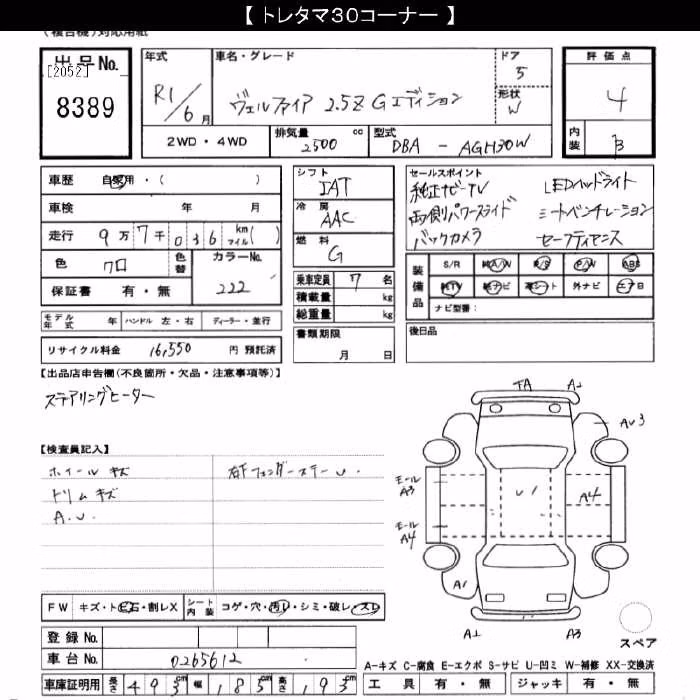 【 トレタマ30コーナー 】
(複合機)対応用紙
出品No.
[2052]
8389
年式 R1/6月
車名・グレード ヴェルファイア 2.5Z Gエディション
ドア 5
形状 W
評価点 4
内装 B
2WD・4WD
排気量 2500 cc
型式 DBA - AGH30W
車歴 自家用・( )
車検 年 月
走行 9万7千036 km マイル( )
色 クロ 色替 カラーNo. 222
保証書 有・無
シフト IAT
冷房 AAC
燃料 G
乗車定員 7名
積載量 kg
総重量 kg
書類期限 月 日
セールスポイント
純正ナビ・TV LEDヘッドライト
両側パワースライド シートベンチレーション
バックカメラ セーフティセンス
装備品 S/R 純A/W P/S P/W ABS
純TV 純ナビ 革シート 外ナビ エアB
ナビ型番:
後日品
モデル年式 年 ハンドル 左・右 ディーラー・並行
リサイクル料金 16,550 円 預託済
【出品店申告欄(不良箇所・欠品・注意事項等)】
ステアリングヒーター
【検査員記入】
ホイールキズ 右Fフェンダーステー U.
トリムキズ
A.U.
TA A2
AU3
モール A3
U1
A4
モール A4
A1
A2 A3
スペア
FW キズ・トビ石・割レX シート内装 コゲ・穴・汚レ・シミ・破レ・スレ
登録No.
車台No. 0265612
A-キズ C-腐食 E-エクボ S-サビ U-凹ミ W-補修 XX-交換済
車庫証明用 長さ 493cm 幅 185cm 高さ 193cm
工具 有・無 ジャッキ 有・無